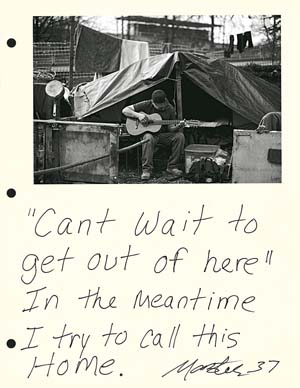 "Cant Wait to
get out of here"
In the Meantime
I try to call this
Home.
37